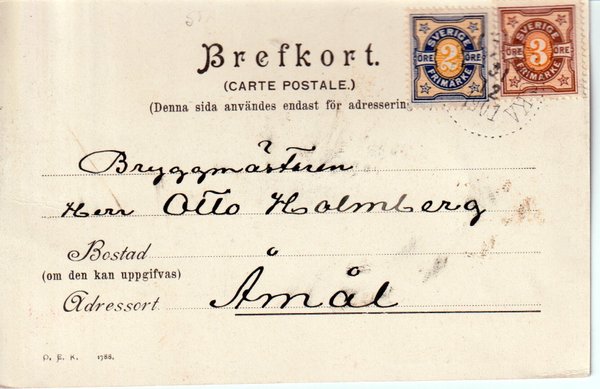 Brefkort.
(CARTE POSTALE.)
(Denna sida användes endast för adressering
SVERIGE
ÖRE 2 ÖRE
FRIMÄRKE
SVERIGE
ÖRE 3 ÖRE
FRIMÄRKE
Bryggmästaren
Herr Otto Holmberg
Bostad
(om den kan uppgifvas)
Adressort Åmål
1788.